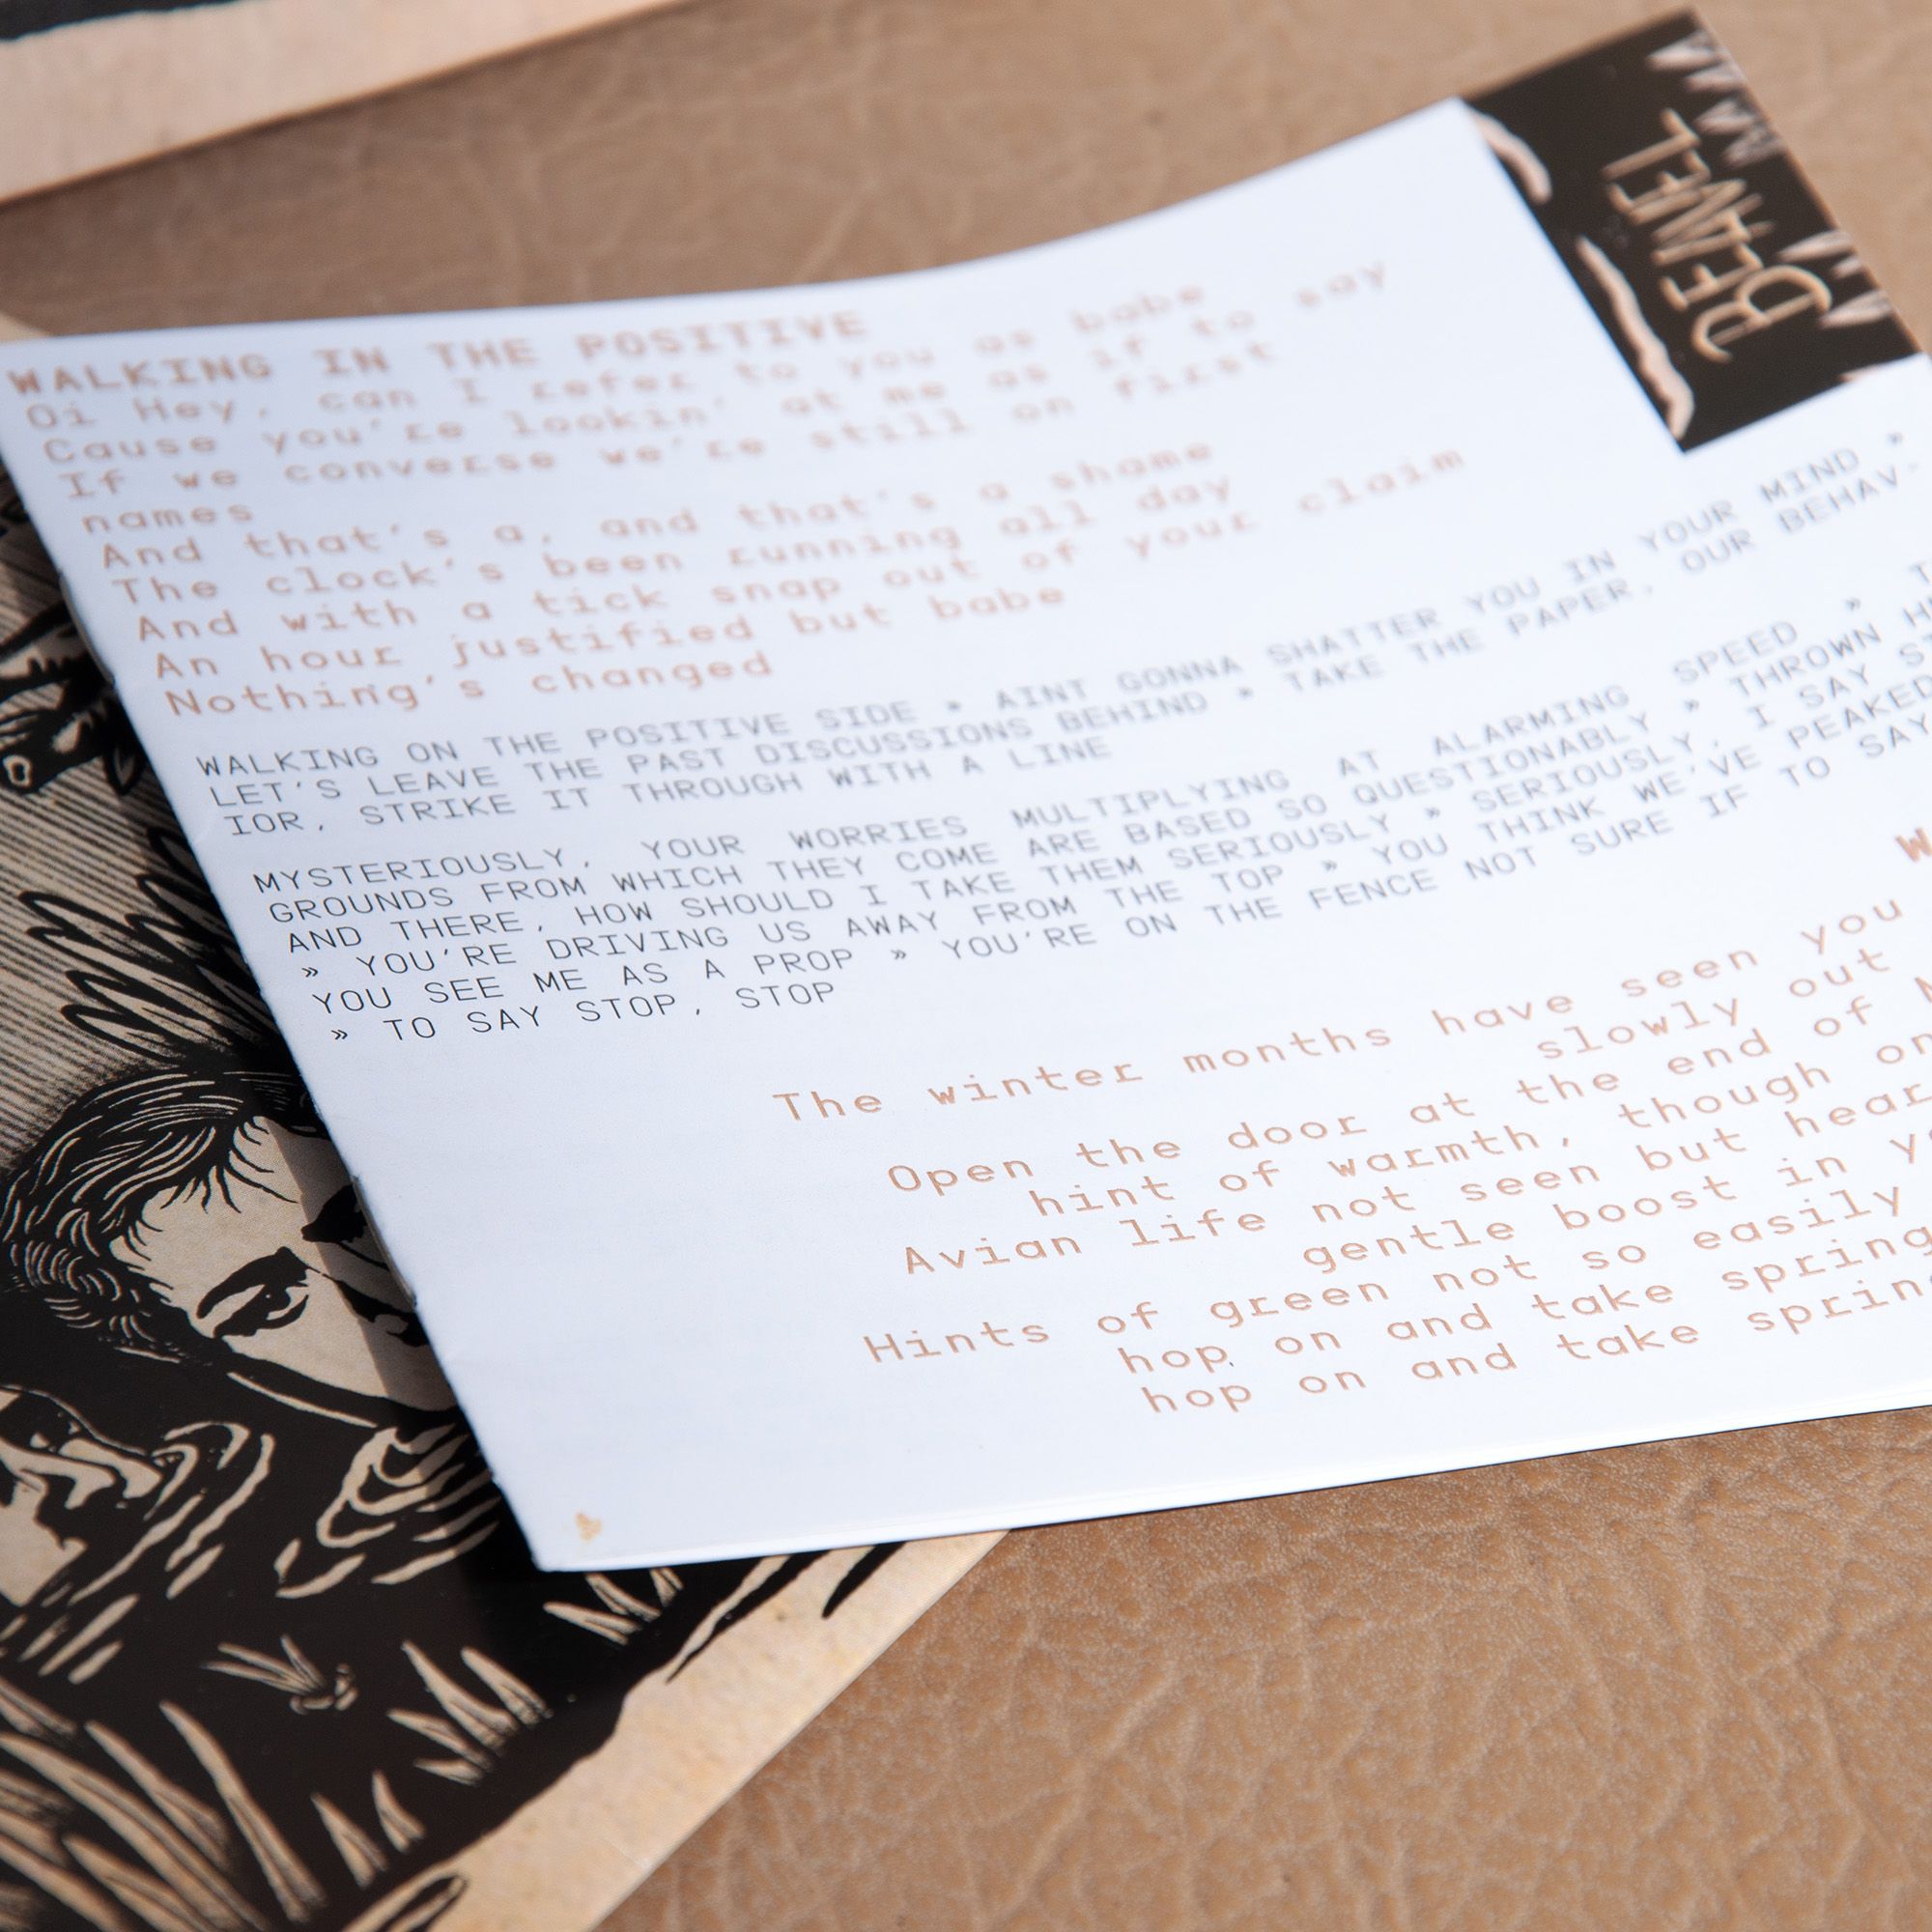 WALKING IN THE POSITIVE
Oi Hey, can I refer to you as babe
Cause you're lookin' at me as if to say
If we converse we're still on first
names
And that's a, and that's a shame
The clock's been running all day
And with a tick snap out of your claim
An hour justified but babe
Nothing's changed
WALKING ON THE POSITIVE SIDE » AINT GONNA SHATTER YOU IN YOUR MIND »
LET'S LEAVE THE PAST DISCUSSIONS BEHIND » TAKE THE PAPER, OUR BEHAV-
IOR, STRIKE IT THROUGH WITH A LINE
MYSTERIOUSLY, YOUR WORRIES MULTIPLYING AT ALARMING SPEED »
GROUNDS FROM WHICH THEY COME ARE BASED SO QUESTIONABLY » THROWN
AND THERE, HOW SHOULD I TAKE THEM SERIOUSLY » SERIOUSLY, I SAY
» YOU'RE DRIVING US AWAY FROM THE TOP » YOU THINK WE'VE PEAKED
YOU SEE ME AS A PROP » YOU'RE ON THE FENCE NOT SURE IF TO SAY
» TO SAY STOP, STOP
The winter months have seen you
slowly out
Open the door at the end of
hint of warmth, though
Avian life not seen but hear
gentle boost in
Hints of green not so easily
hop on and take spring
hop on and take spring